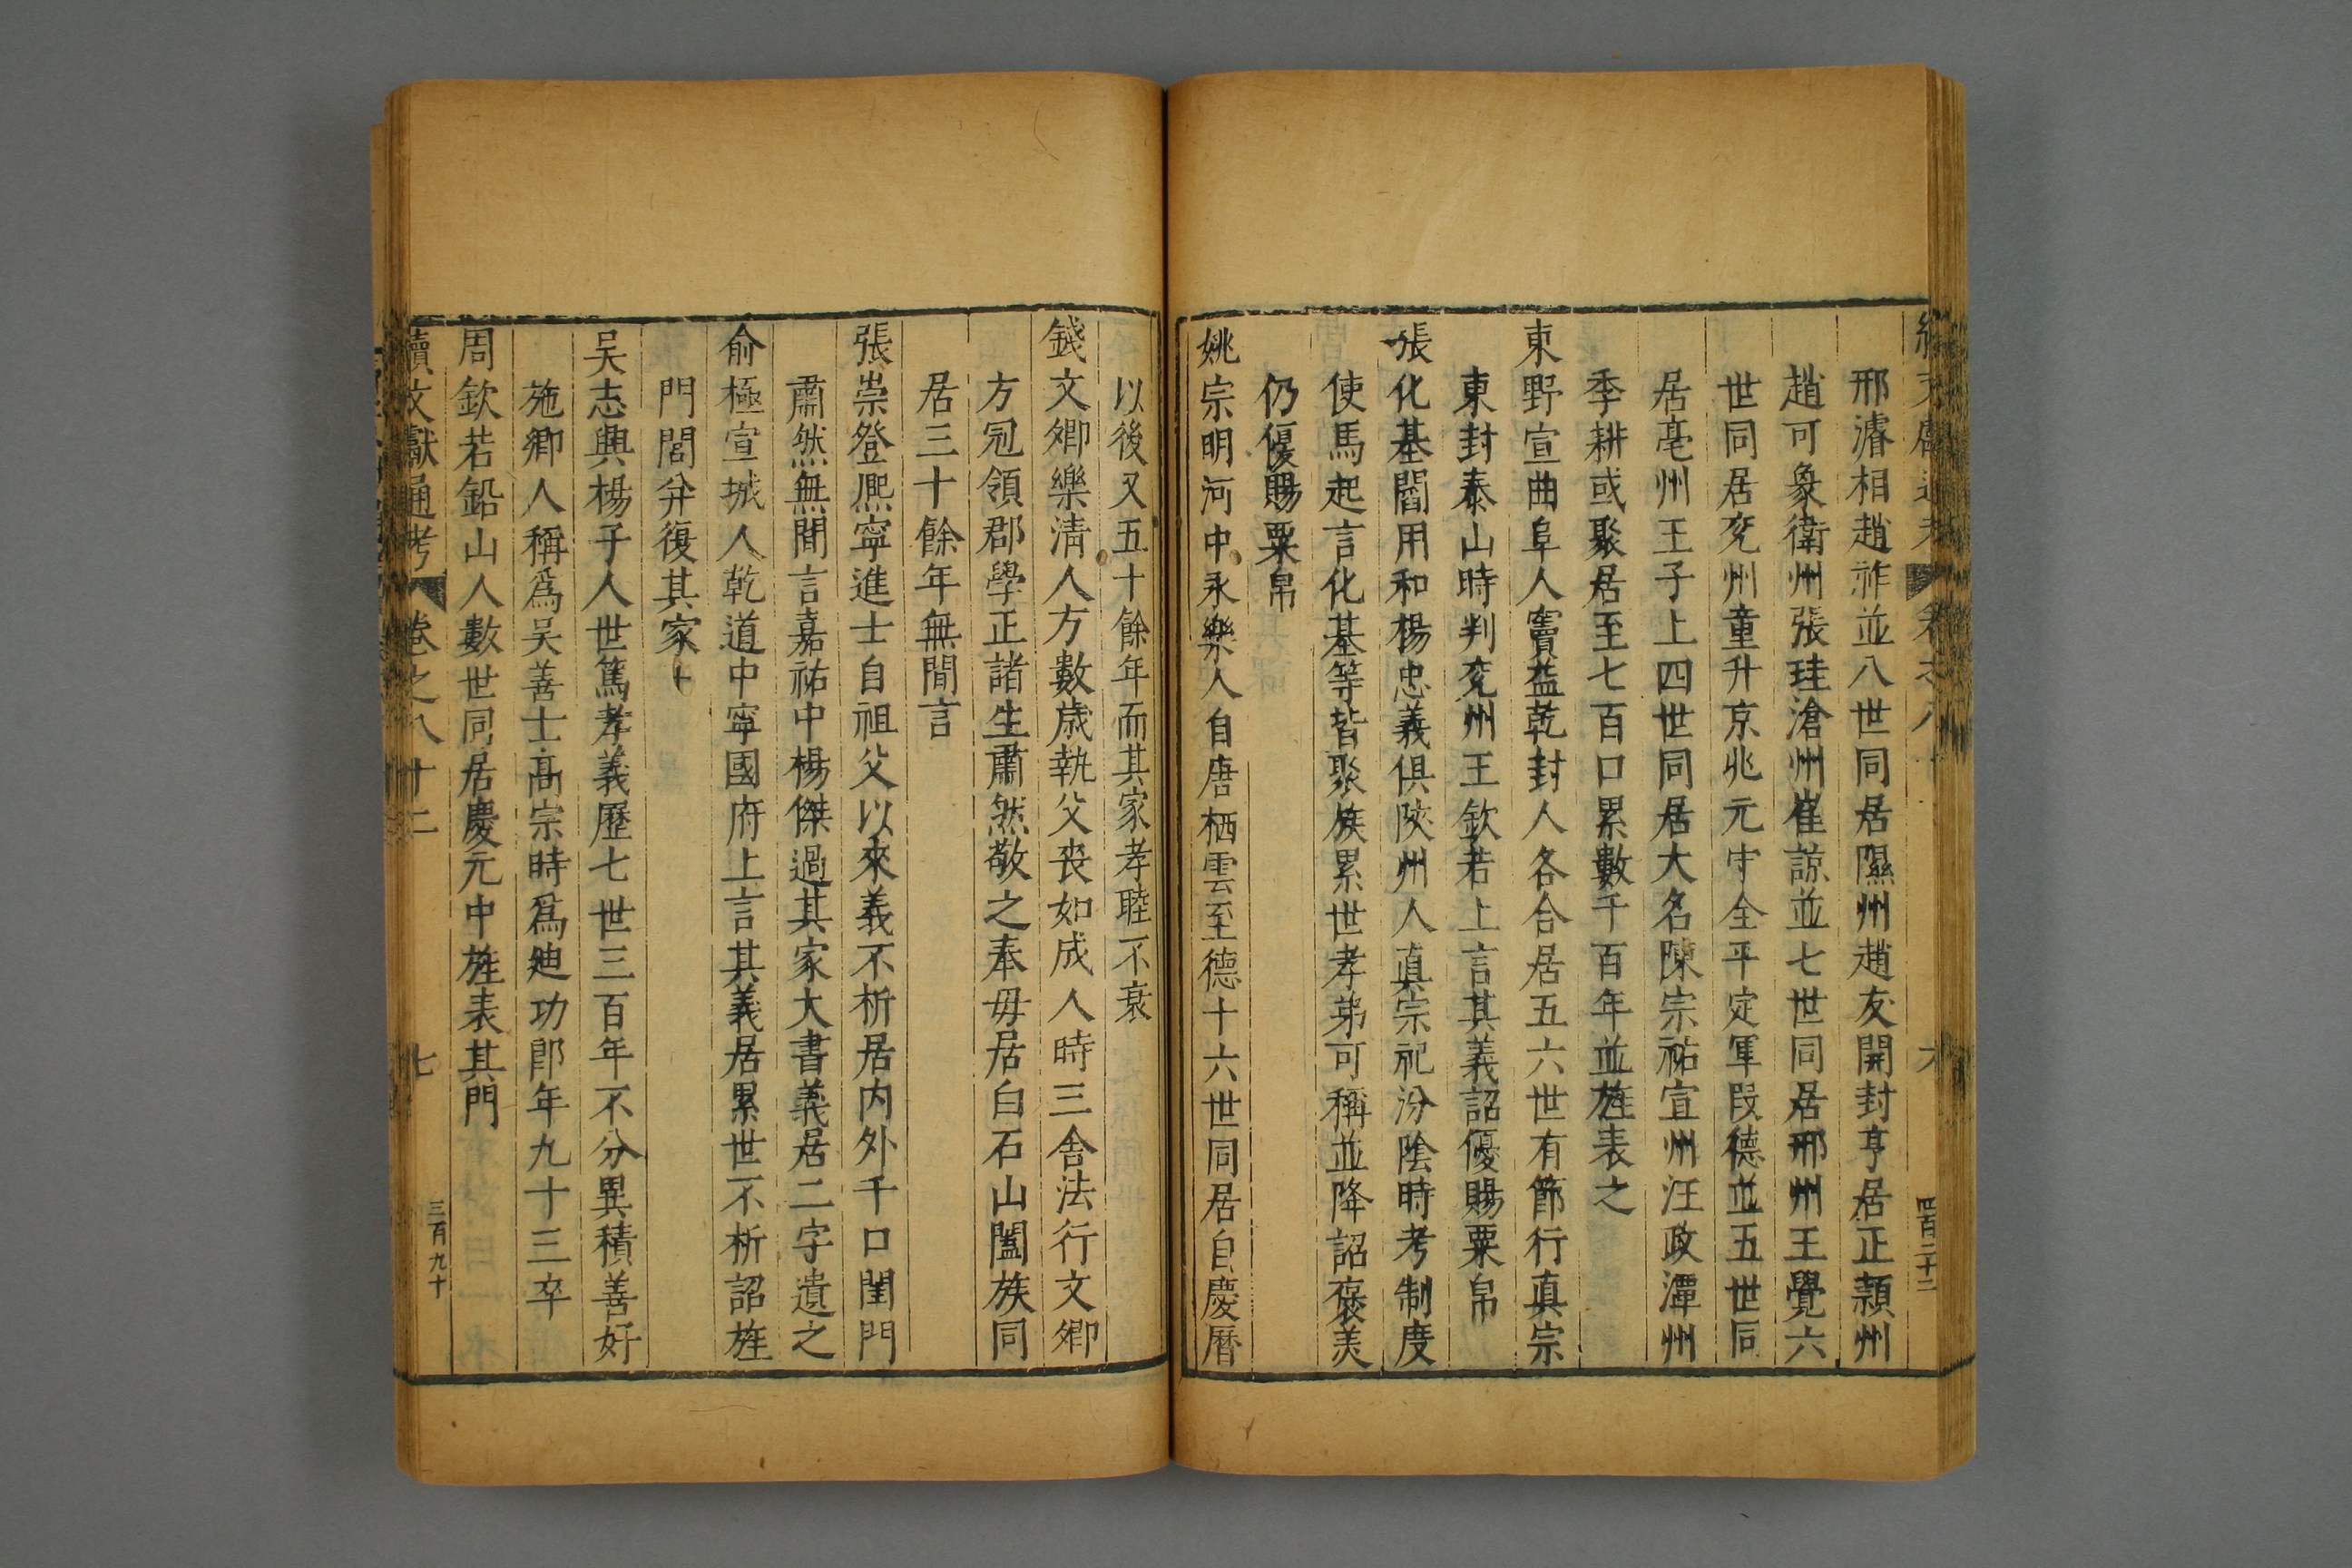 邢濬相趙祚並八世同居隰州趙友開封亨居正潁州
趙可象衛州張珪滄州崔諒並七世同居邢州王覺六
世同居兖州童升京兆元守全平定軍叚德並五世同
居亳州王子上四世同居大名陳宗祐宣州汪政潭州
季耕或聚居至七百口累數千百年並旌表之
東野宣曲阜人竇益乾封人各合居五六世有節行真宗
東封泰山時判兖州王欽若上言其義詔優賜粟帛
張化基閻用和楊忠義俱陜州人真宗祀汾陰時考制度
使馬起言化基等皆聚族累世孝弟可稱並降詔襃美
仍優賜粟帛
姚宗明河中永樂人自唐栖雲至德十六世同居自慶曆
以後又五十餘年而其家孝睦不衰
錢文卿樂清人方數歳執父丧如成人時三舎法行文卿
方冠領郡學正諸生肅然敬之奉毋居白石山闔族同
居三十餘年無間言
張崇登熈寧進士自祖父以來義不析居内外千口閨門
肅然無間言嘉祐中楊傑過其家大書義居二字遺之
俞極宣城人乾道中寧國府上言其義居累世不析詔旌
門閭并復其家
吴志興楊子人世篤孝義歷七世三百年不分異積善好
施卿人稱爲吴善士髙宗時爲廸功郎年九十三卒
周欽若鉛山人數世同居慶元中旌表其門
續文獻通考 卷之八十二 七 三百九十